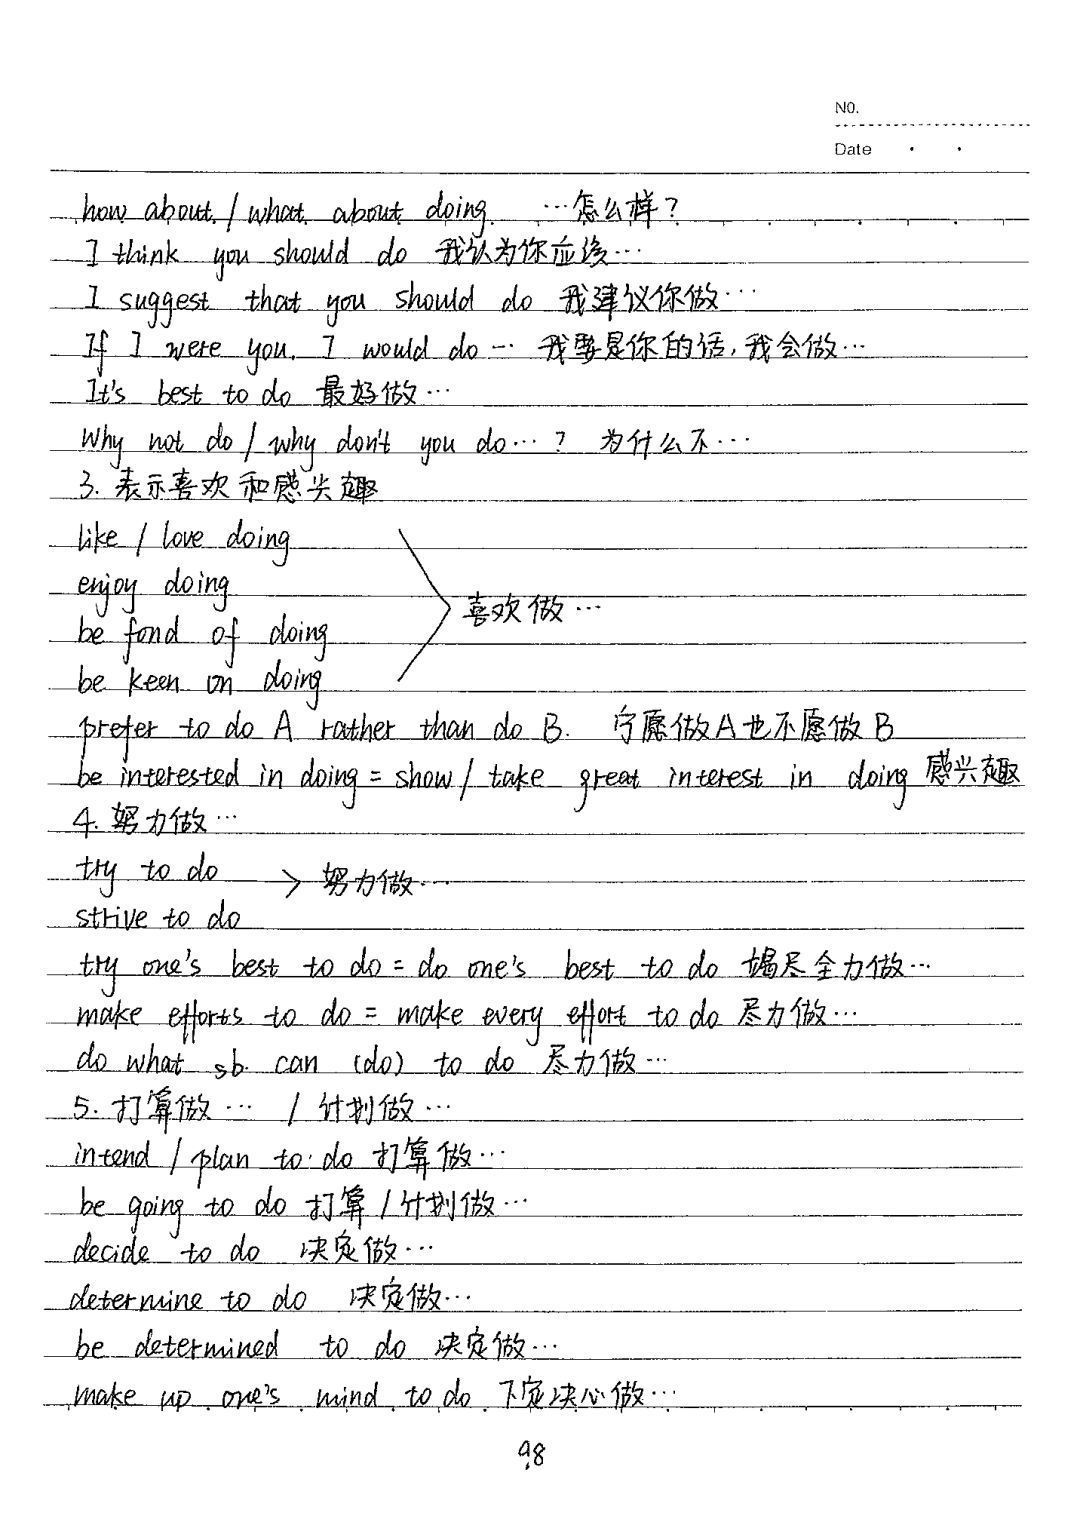 NO.
Date
how about / what about doing …怎么样?
I think you should do 我认为你应该…
I suggest that you should do 我建议你做…
If I were you, I would do … 我要是你的话,我会做…
It's best to do 最好做…
Why not do / why don't you do…? 为什么不…
3. 表示喜欢和感兴趣
like / love doing
enjoy doing
喜欢做…
be fond of doing
be keen on doing
prefer to do A rather than do B. 宁愿做A也不愿做B
be interested in doing = show / take great interest in doing 感兴趣
4. 努力做…
try to do > 努力做…
strive to do
try one's best to do = do one's best to do 竭尽全力做…
make efforts to do = make every effort to do 尽力做…
do what sb. can (do) to do 尽力做…
5. 打算做… / 计划做…
intend / plan to do 打算做…
be going to do 打算 / 计划做…
decide to do 决定做…
determine to do 决定做…
be determined to do 决定做…
make up one's mind to do 下定决心做…
98